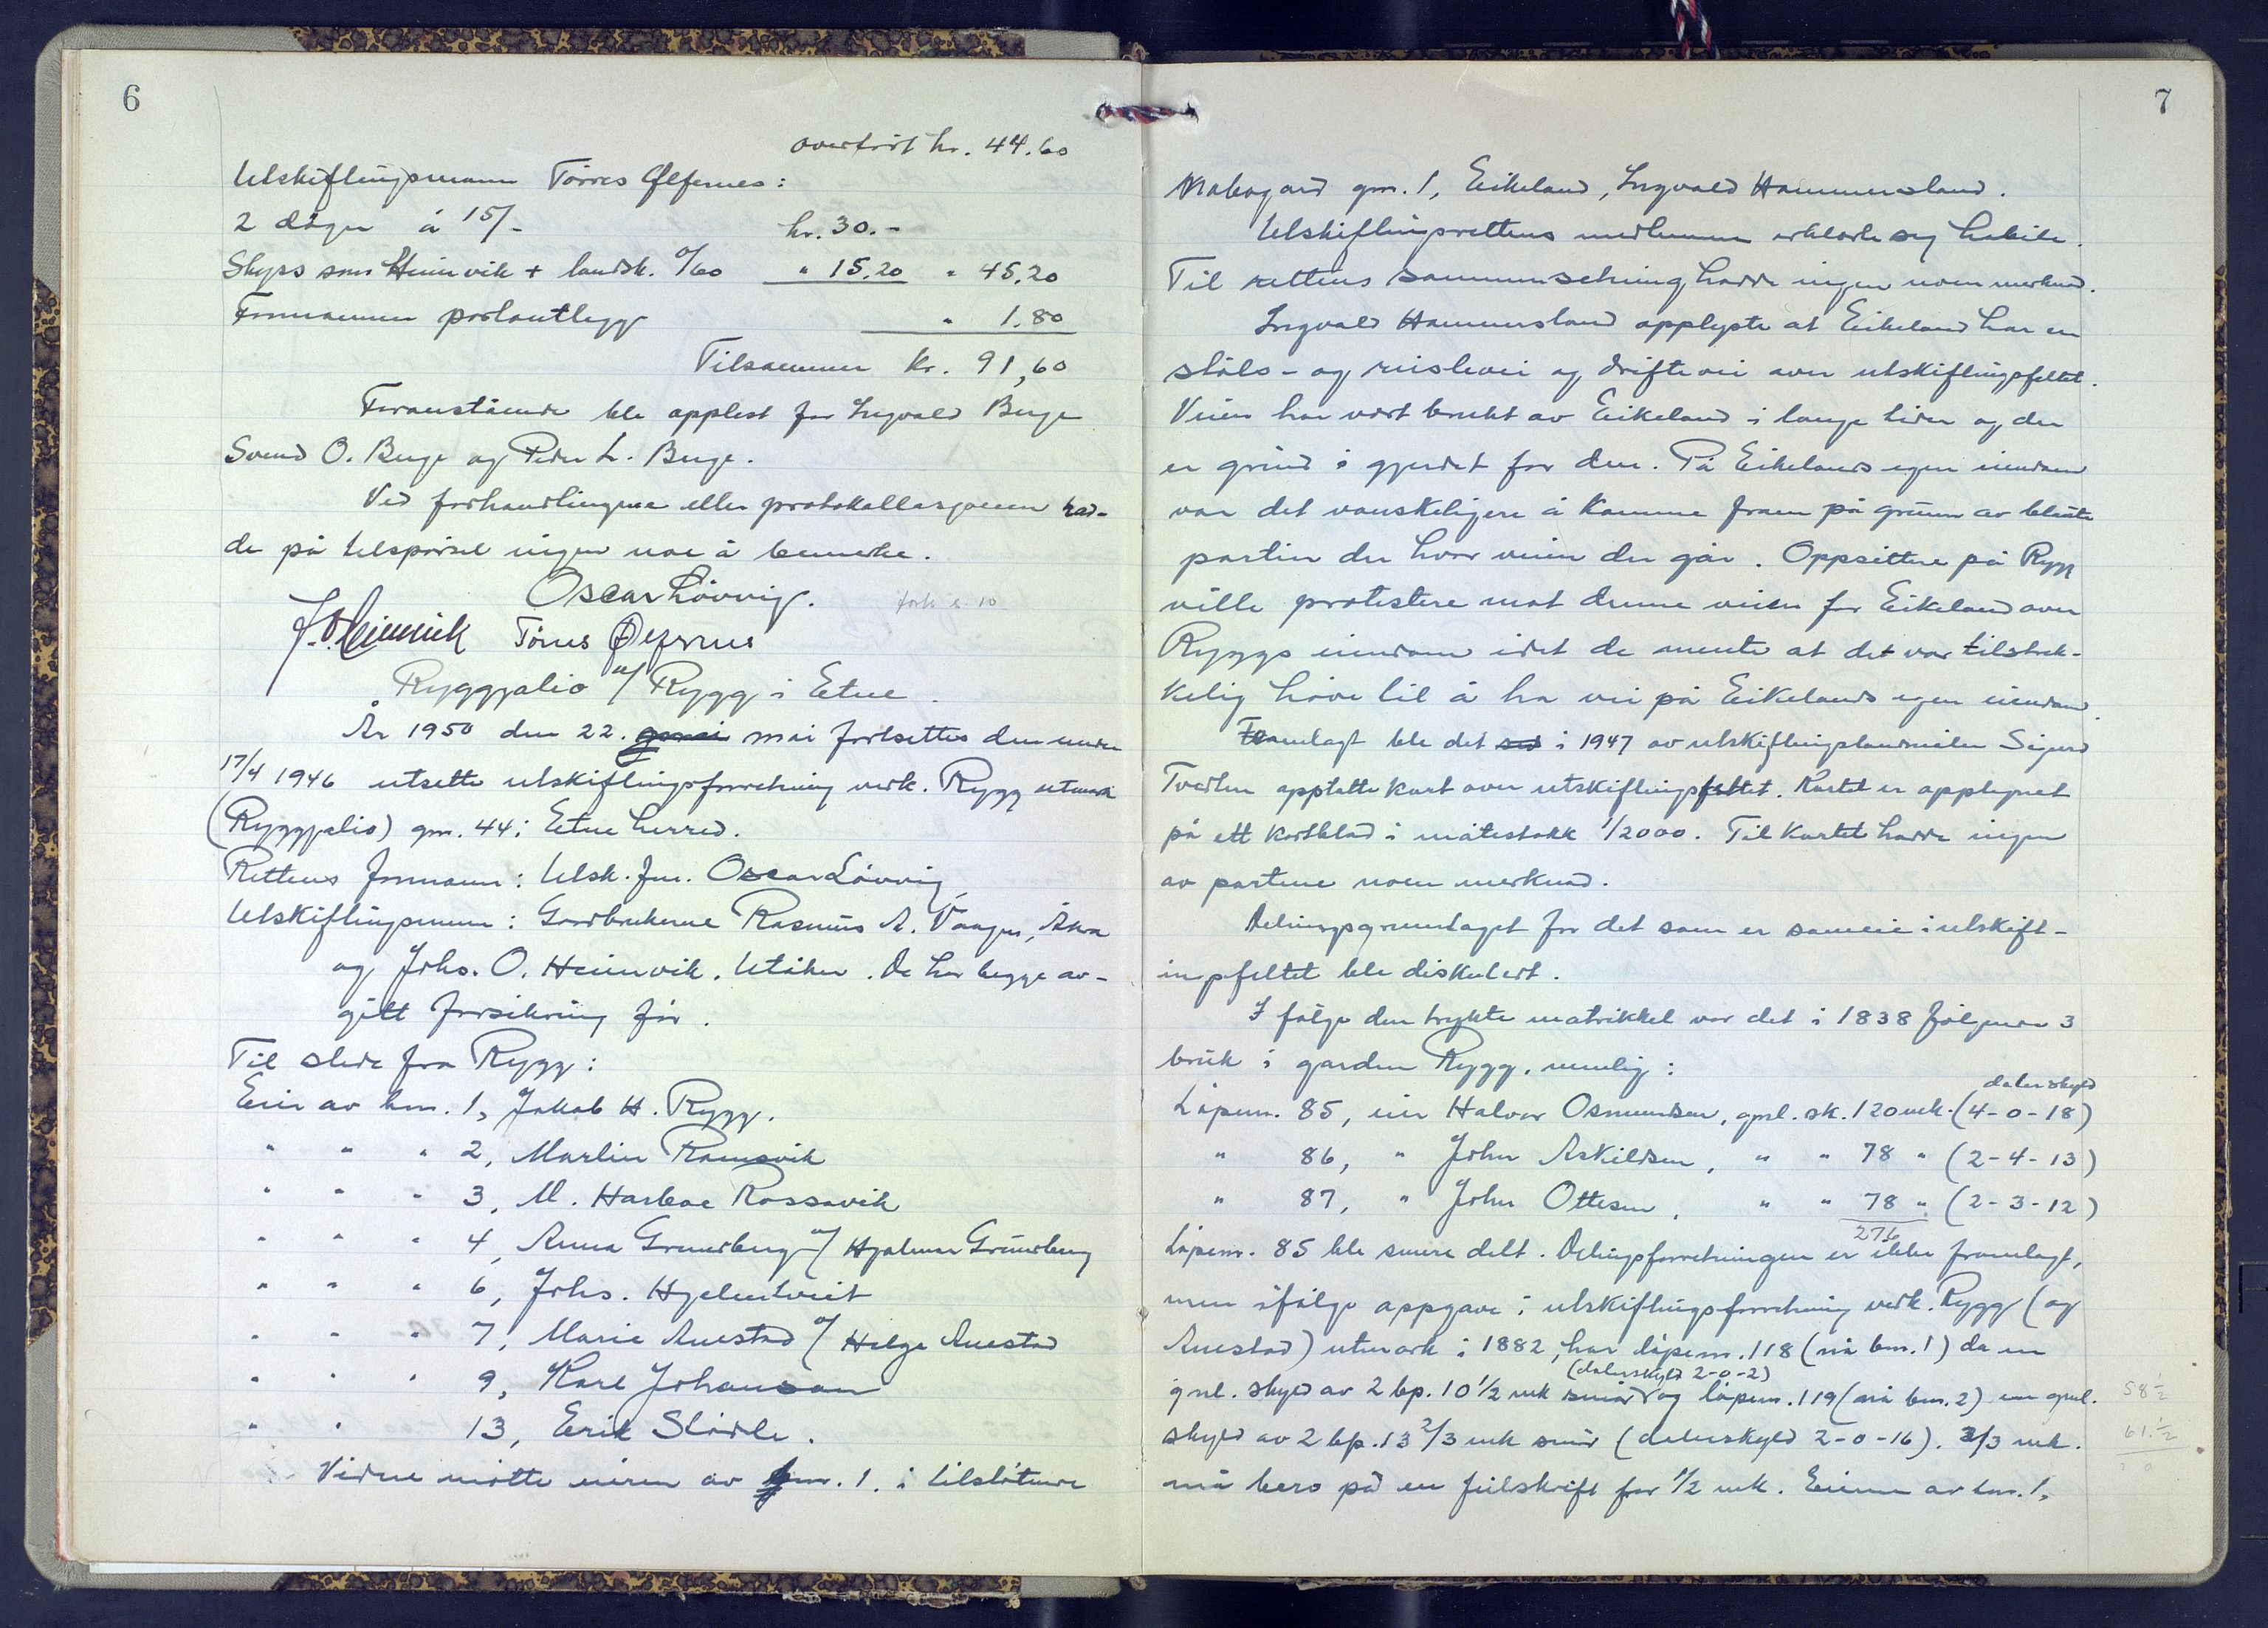 6
overført kr. 44.60
Utskiftingsmann Tørres Ølfernes:
2 dager á 15/- kr. 30.-
Skyss som Heimvik + landsk. 0/60 " 15.20 " 45.20
Formannen portoutlegg " 1.80
Tilsammen kr. 91,60
Foranstående ble opplest for Ingvald Berge
Svend O. Berge og Peder L. Berge.
Ved forhandlingene eller protokollasjonen had-
de på tilspørsel ingen noe å bemerke.
Oscar Løvvig. fork s. 10
J. O. Heimvik Tørres Ølfernes
Ryggjalio u/ Rygg i Etne.
År 1950 den 22. mai fortsettes den under
17/4 1946 utsette utskiftingsforretning vedk. Rygg utmark
(Ryggjalio) gnr. 44 i Etne herred.
Rettens formann: Utsk. for. Oscar Løvvig,
Utskiftingsmenn: Gardbrukerne Rasmus A. Vaager, Åkra
og Johs. O. Heimvik, Utåker. De har begge av-
gitt forsikring før.
Til stede fra Rygg:
Eier av bnr. 1, Jakob H. Rygg.
" " " 2, Martin Ramsvik
" " " 3, M. Harboe Rossavik
" " " 4, Anna Grunsberg v/ Hjalmar Grunsberg
" " " 6, Johs. Hjelmtveit
" " " 7, Marie Auestad v/ Helge Auestad
" " " 9, Karl Johansson
" " 13, Erik Stødle.
Videre møtte eieren av bnr. 1. i tilstøtende
7
Nabogard gnr. 1, Eikeland, Ingvald Hammersland.
Utskiftingsrettens medlemmer erklærte seg habile.
Til rettens sammensetning hadde ingen noen merknad.
Ingvald Hammersland opplyste at Eikeland har en
støls- og rislevei og driftevei over utskiftingsfeltet.
Veien har vært brukt av Eikeland i lange tider og der
er grind i gjerdet for den. På Eikelands egen eiendom
var det vanskeligere å komme fram på grunn av bløte
partier der hvor veien der går. Oppsittere på Rygg
ville protestere mot denne veien for Eikeland over
Ryggs eiendom idet de mente at det var tilstrek-
kelig høve til å ha vei på Eikelands egen eiendom.
Framlagt ble det i 1947 av utskiftingslandmåler Sigurd
Tvedten opptatte kart over utskiftingsfeltet. Kartet er opptegnet
på ett kartblad i målestokk 1/2000. Til kartet hadde ingen
av partene noen merknad.
Delingsgrunnlaget for det som er sameie i utskift-
ingsfeltet ble diskutert.
I følge den trykte matrikkel var det i 1838 følgende 3
bruk i garden Rygg, nemlig:
dalerskyld
Løpenr. 85, eier Halvor Osmundsen, gml. sk. 120 mk. (4-0-18)
" 86, " John Askildsen, " " 78 " (2-4-13)
" 87, " John Ottesen, " " 78 " (2-3-12)
276
Løpenr. 85 ble senere delt. Delingsforretningen er ikke framlagt,
men ifølge oppgave i utskiftingsforretning vedk. Rygg (og
Auestad) utmark i 1882, har løpenr. 118 (nå bnr. 1) da en
(dalerskyld 2-0-2)
gml. skyld av 2 bp. 10 1/2 mk smør og løpenr. 119 (nå bnr. 2) en gml.
58 1/2
skyld av 2 bp. 13 2/3 mk smør (dalerskyld 2-0-16). 2/3 mk.
61 1/2
må bero på en feilskrift for 1/2 mk. Eieren av bnr. 1,